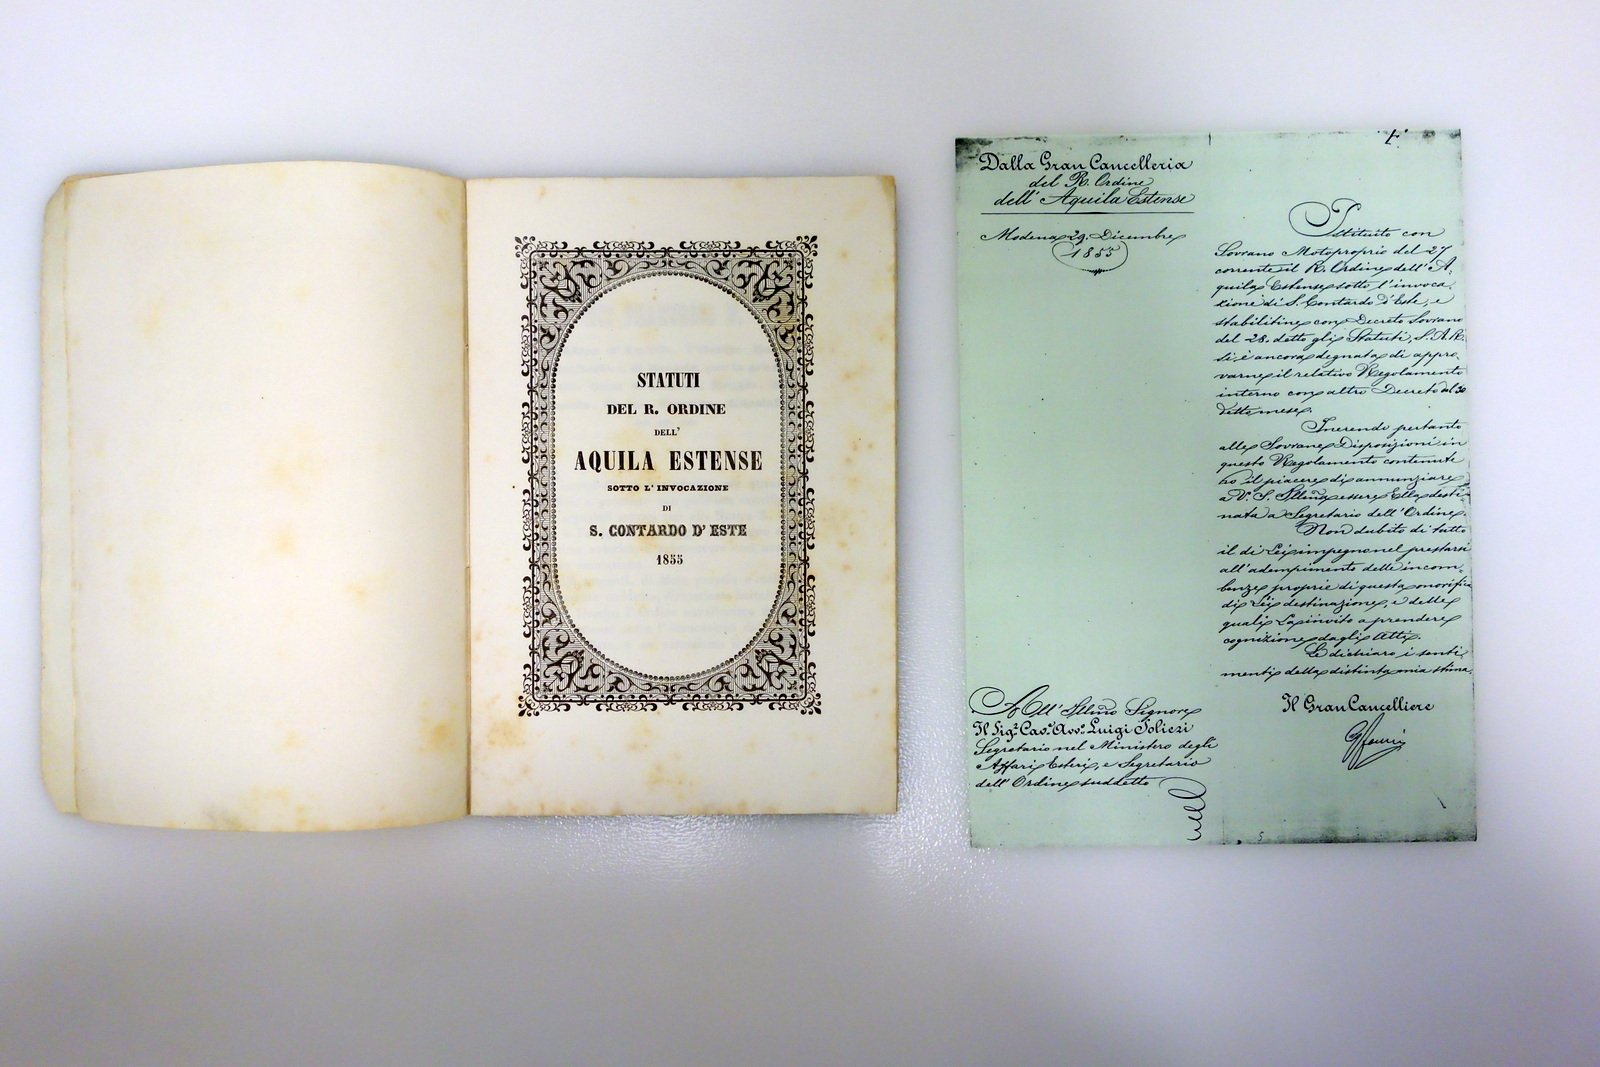 STATUTI
DEL R. ORDINE
DELL'
AQUILA ESTENSE
SOTTO L'INVOCAZIONE
DI
S. CONTARDO D'ESTE
1855
Dalla Gran Cancelleria
del R. Ordine
dell' Aquila Estense
Modena 29. Dicembre
1855
Istituito con
Sovrano Motoproprio del 27
corrente il R. Ordine dell' A-
quila Estense sotto l'invoca-
zione di S. Contardo d'Este, e
stabilitine con Decreto Sovrano
del 28. detto gli Statuti, S. A. R.
si è ancora degnata di appro-
varne il relativo Regolamento
interno con altro Decreto del 30
detto mese.
Inerendo pertanto
alle Sovrane Disposizioni in
questo Regolamento contenute
ho il piacere di annunziare
a V. S. Illma essere Ella desti-
nata a Segretario dell' Ordine.
Non dubito di tutto
il di Lei impegno nel prestarsi
all' adempimento delle incom-
benze proprie di questa onorifica
di Lei destinazione, e delle
quali La invito a prendere
cognizione dagli Atti.
Le dichiaro i senti-
menti della distinta mia stima.
Il Gran Cancelliere
All' Illmo Signore
Il Sigr. Cavo. Avvo. Luigi
Segretario nel Ministero degli
Affari Esteri, e Segretario
dell' Ordine suddetto